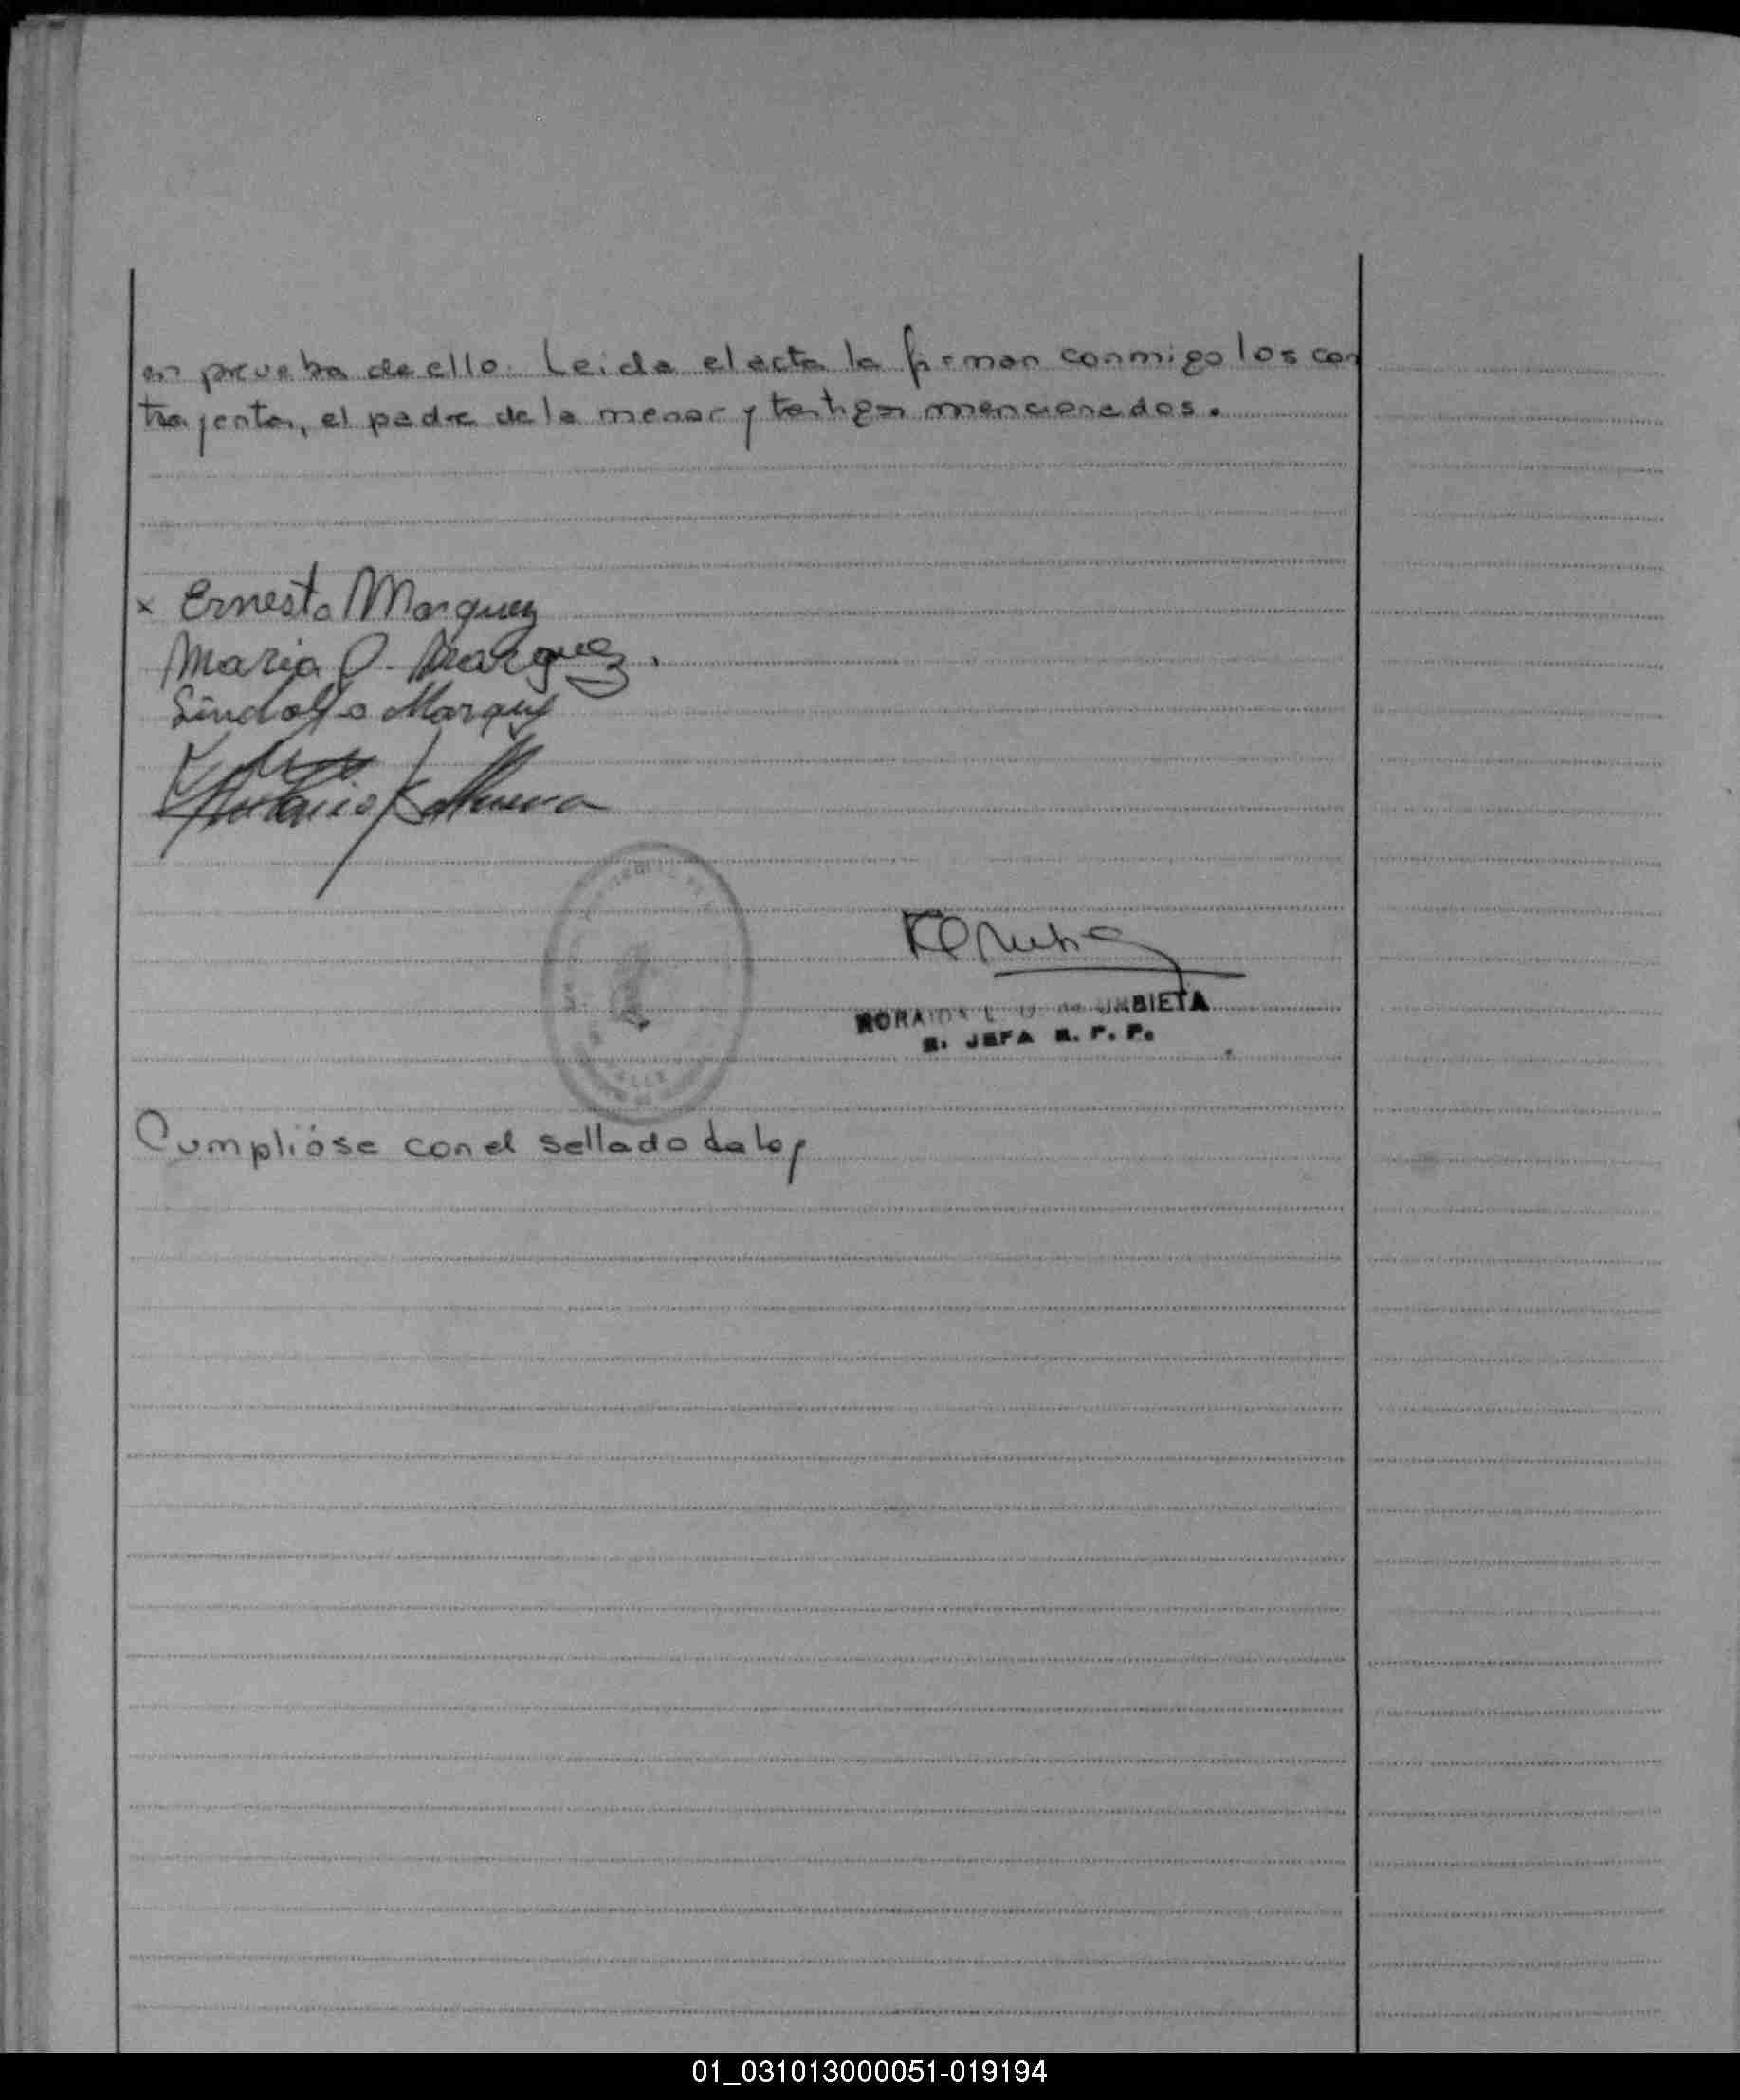 en prueba de ello. Leida el acta la firman conmigo los con
trayentes, el padre de la menor y testigos mencionados.
x Ernesto Marquez
Maria O. Marquez.
Lindolfo Marquez
Antonio
URBIETA
JEFA R. P. P.
Cumplióse con el sellado de ley
01_031013000051-019194